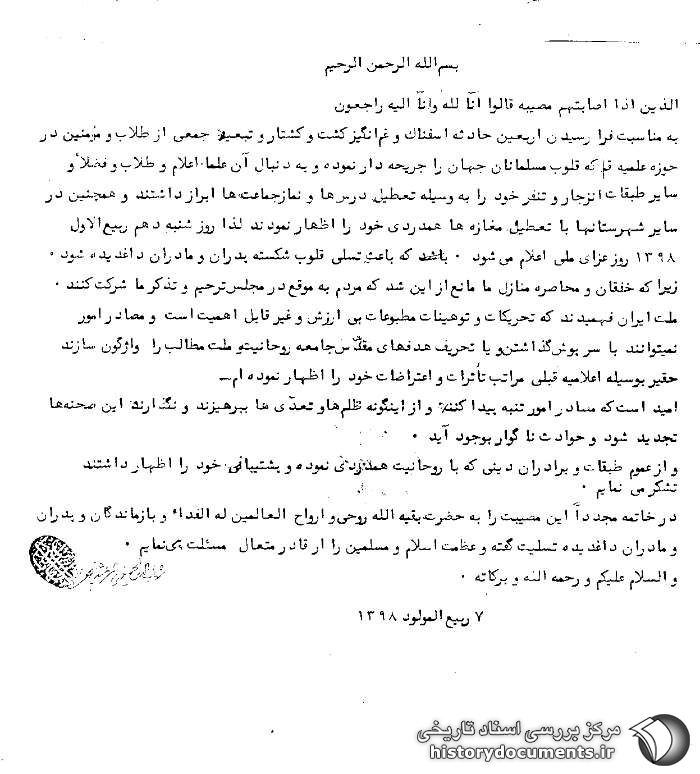 بسم الله الرحمن الرحیم
الذین اذا اصابتهم مصیبه قالوا انّا لله وانّا الیه راجعون
به مناسبت فرا رسیدن اربعین حادثه اسفناك و غم انگیز کشت و کشتار و تبعید جمعی از طلاب و مؤمنین در
حوزه علمیه قم که قلوب مسلمانان جهان را جریحه دار نموده و به دنبال آن علماء اعلام و طلاب و فضلاء و
سایر طبقات انزجار و تنفر خود را به وسیله تعطیل درس‌ها و نماز جماعت‌ها ابراز داشتند و همچنین در
سایر شهرستانها با تعطیل مغازه ها همدردی خود را اظهار نمودند لذا روز شنبه دهم ربیع الاول
۱۳۹۸ روز عزای ملی اعلام می شود . باشد که باعث تسلی قلوب شکسته پدران و مادران داغدیده شود .
زیرا که خفقان و محاصره منازل ما مانع از این شد که مردم به موقع در مجلس ترحیم و تذکر ما شرکت کنند .
ملت ایران فهمیدند که تحریکات و توهینات مطبوعات بی ارزش و غیر قابل اهمیت است و مصادر امور
نمیتوانند با سرپوش گذاشتن و یا تحریف هدفهای مقدّس جامعه روحانیت و ملت مطالب را واژگون سازند
حقیر بوسیله اعلامیه قبلی مراتب تأثرات و اعتراضات خود را اظهار نموده ام
امید است که مصادر امور تنبه پیدا کنند و از اینگونه ظلم‌ها و تعدّی ها بپرهیزند و نگذارند این صحنه‌ها
تجدید شود و حوادث ناگوار بوجود آید .
و از عموم طبقات و برادران دینی که با روحانیت همدردی نموده و پشتیبانی خود را اظهار داشتند
تشکر می نمایم .
در خاتمه مجدداً این مصیبت را به حضرت بقیه الله روحی و ارواح العالمین له الفداء و بازماندگان و پدران
و مادران داغدیده تسلیت گفته و عظمت اسلام و مسلمین را از قادر متعال مسئلت می‌نمایم .
و السلام علیکم و رحمه الله و برکاته .
۷ ربیع المولود ۱۳۹۸
مرکز بررسی اسناد تاریخی
historydocuments.ir